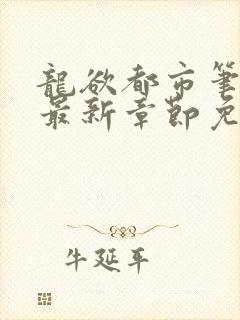 龍欲都市筆
最新章節免
牛延平